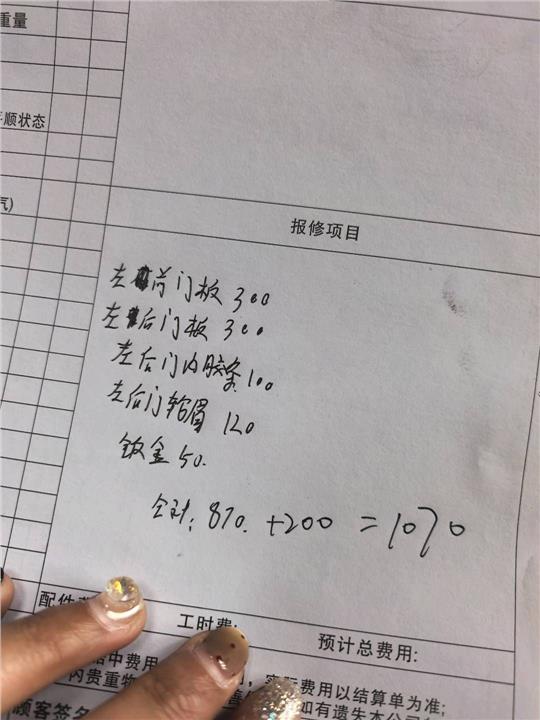 重量
顺状态
气)
报修项目
左前门板 300
左后门板 300
左后门内胶条 100
左后门轮眉 120
钣金 50.
合计: 870. +200 = 1070
配件
工时费:
预计总费用:
中费用
实际费用以结算单为准;
内贵重物
如有遗失本公司
顾客签名